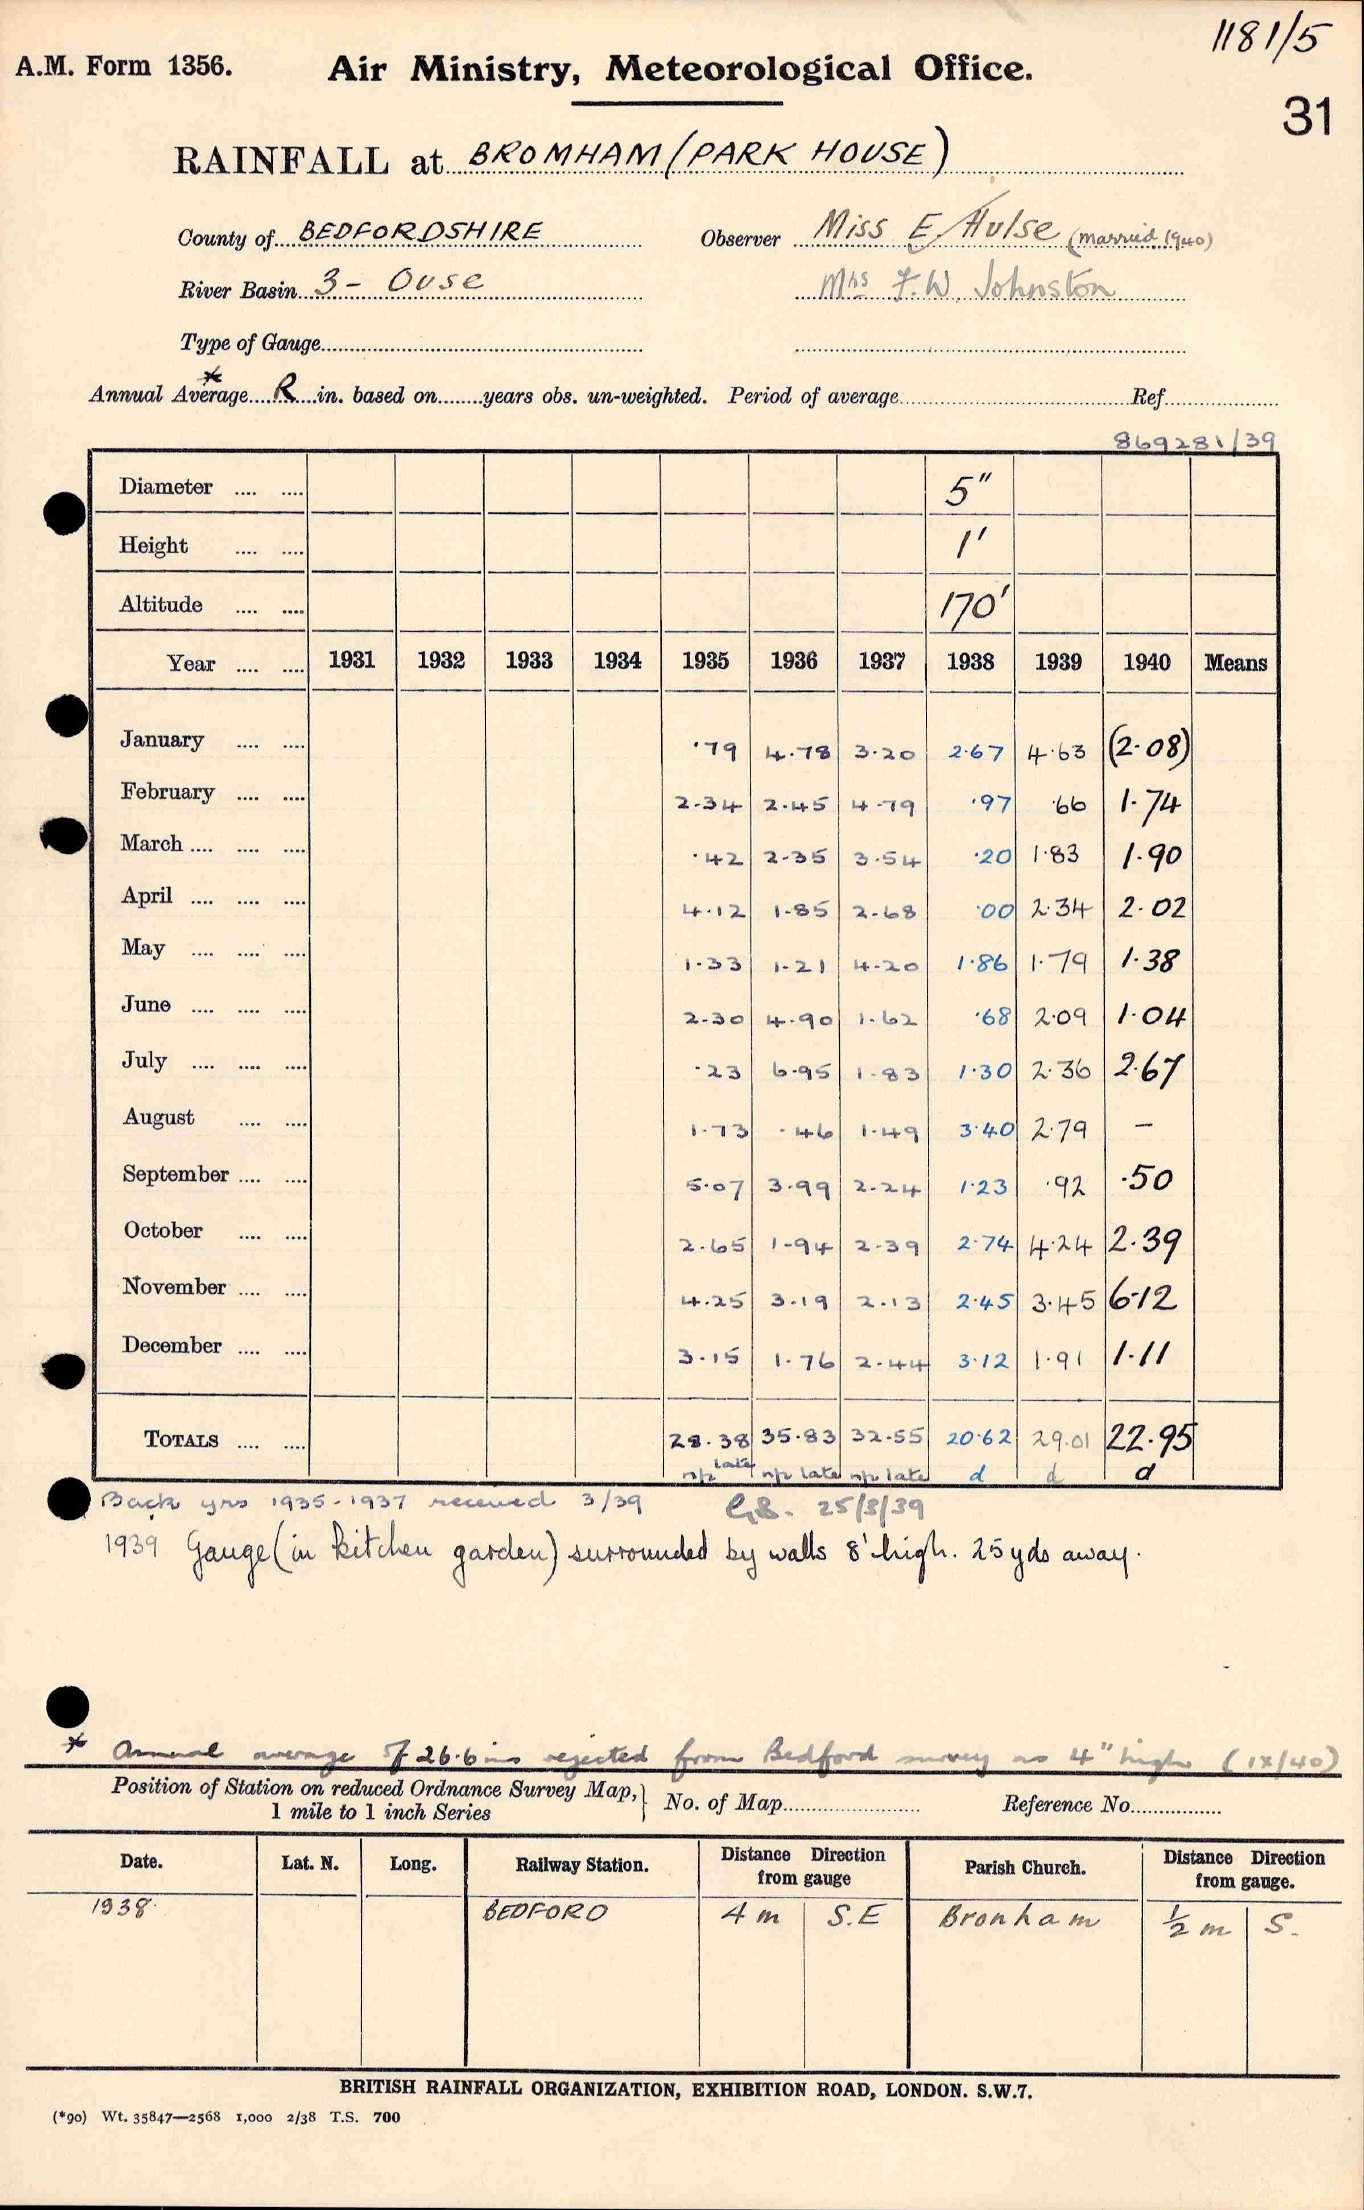 1181/5
A.M. Form 1356. Air Ministry, Meteorological Office.
31
RAINFALL at BROMHAM (PARK HOUSE)
County of BEDFORDSHIRE Observer Miss E Hulse (married 1940)
River Basin 3 - Ouse Mrs F.W. Johnston
Type of Gauge
Annual Average R in. based on years obs. un-weighted. Period of average Ref
869281/39
Diameter 5"
Height 1'
Altitude 170'
Year 1931 1932 1933 1934 1935 1936 1937 1938 1939 1940 Means
January ·79 4·78 3·20 2·67 4·63 (2·08)
February 2·34 2·45 4·79 ·97 ·66 1·74
March ·42 2·35 3·54 ·20 1·83 1·90
April 4·12 1·85 2·68 ·00 2·34 2·02
May 1·33 1·21 4·20 1·86 1·79 1·38
June 2·30 4·90 1·62 ·68 2·09 1·04
July ·23 6·95 1·83 1·30 2·36 2·67
August 1·73 ·46 1·49 3·40 2·79 –
September 5·07 3·99 2·24 1·23 ·92 ·50
October 2·65 1·94 2·39 2·74 4·24 2·39
November 4·25 3·19 2·13 2·45 3·45 6·12
December 3·15 1·76 2·44 3·12 1·91 1·11
TOTALS 28·38 35·83 32·55 20·62 29·01 22·95
np late np late np late d d d
Back yrs 1935-1937 received 3/39 25/3/39
1939 Gauge (in kitchen garden) surrounded by walls 8' high. 25 yds away.
* Annual average of 26·6 ins rejected from Bedford survey as 4" high (ix/40)
Position of Station on reduced Ordnance Survey Map, 1 mile to 1 inch Series No. of Map Reference No.
Date. Lat. N. Long. Railway Station. Distance Direction from gauge Parish Church. Distance Direction from gauge.
1938 BEDFORD 4 m S.E Bronham ½ m S.
BRITISH RAINFALL ORGANIZATION, EXHIBITION ROAD, LONDON. S.W.7.
(*90) Wt. 35847—2568 1,000 2/38 T.S. 700